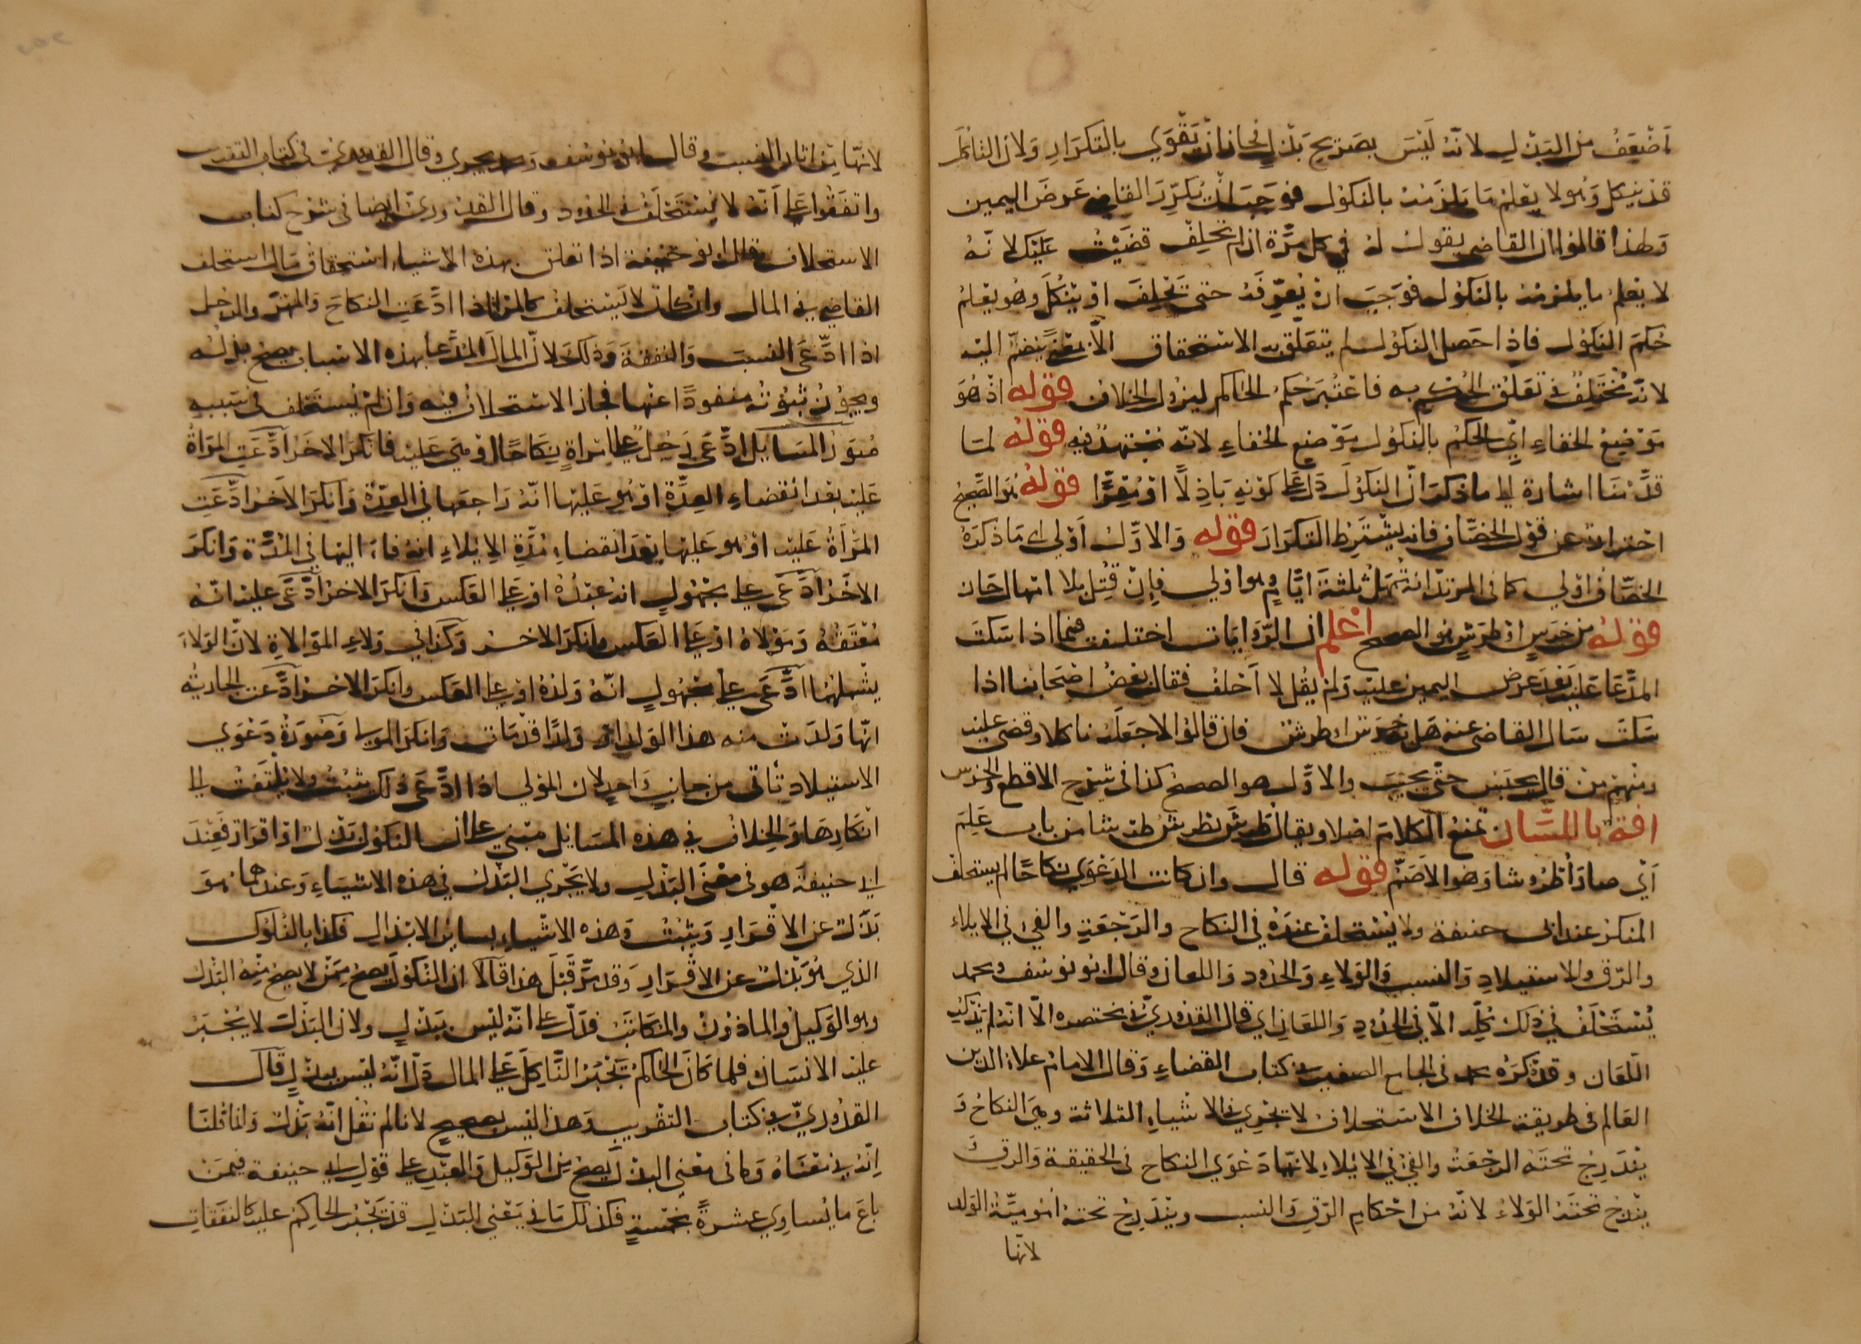 اضعف من البذل لانه ليس بصريح بذل فجاز ان يقوي بالتكرار ولان الناكل
قد ينكل وهو لا يعلم ما يلزمه بالنكول فوجب ان يكرر القاضي عرض اليمين
ولهذا قالوا ان القاضي يقول له في كل مرة ان لم تحلف قضيت عليك لانه
لا يعلم ما يلزمه بالنكول فوجب ان يعرفه حتى يحلف او ينكل وهو يعلم
حكم النكول فاذا حصل النكول لم يتعلق به الاستحقاق الا بمعنى ينضم اليه
لانه مختلف في تعلق الحكم به فاعتبر حكم الحاكم ليزول الخلاف قوله اذ هو
موضع الخفاء اي الحكم بالنكول موضع الخفاء لانه مجتهد فيه قوله لما
قدمنا اشارة الي ما ذكر ان النكول دل علي كونه باذلا او مقرا قوله هو الصحيح
احترازا عن قول الخصاف فانه يشترط التكرار قوله والاول اولي اي ما ذكره
الخصاف اولي كما في المرتد انه يمهل ثلثة ايام وهو اولي فان قتل بلا امهال جاز
قوله من خرس او طرش هو الصحيح اعلم ان الروايات اختلفت فيما اذا سكت
المدعا عليه بعد عرض اليمين عليه ولم يقل لا احلف فقال بعض اصحابنا اذا
سكت سال القاضي عنه هل به خرس او طرش فان قالوا لا جعله ناكلا وقضي عليه
ومنهم من قال يحبس حتى يجيب والاول هو الصحيح كذا في شرح الاقطع والخرس
افة باللسان تمنع الكلام اصلا ويقال طرش يطرش طرشا من باب علم
اي صار اطروشا وهو الاصم قوله قال وان كانت الدعوي نكاحا لم يستحلف
المنكر عند ابي حنيفة ولا يستحلف عنده في النكاح والرجعة والفي في الايلاء
والرق والاستيلاد والنسب والولاء والحدود واللعان وقال ابو يوسف ومحمد
يستحلف في ذلك كله الا في الحدود واللعان اي قال القدوري في مختصره الا انه لم يذكر
اللعان وقد ذكره محمد في الجامع الصغير في كتاب القضاء وقال الامام علاء الدين
العالم في طريقة الخلاف الاستحلاف لا يجري في الاشياء الثلاثة وهي النكاح و
يندرج تحته الرجعة والفي في الايلاء لانها دعوي النكاح في الحقيقة والرق
يندرج تحته الولاء لانه من احكام الرق والنسب ويندرج تحته امومية الولد
لانها
لانها من اثار النسب وقال ابو يوسف ومحمد يجري وقال القدوري في كتاب التقريب
واتفقوا علي انه لا يستحلف في الحدود وقال القدوري ايضا في شرح كتاب
الاستحلاف قال ابو حنيفة اذا تعلق بهذه الاشياء استحقاق مال استحلف
القاضي في المال وان كان لا يستحلف كالمراة اذا ادعت النكاح والمهر والرجل
اذا ادعى النسب والنفقة وذلك لان المال المدعا بهذه الاسباب يصح بذله
ويجوز ثبوته منفردا عنها فجاز الاستحلاف فيه وان لم يستحلف في سببه
صور المسايل ادعى رجل علي امراة نكاحا او هي عليه فانكر الاخر ادعت المراة
عليه بعد انقضاء العدة او هو عليها انه راجعها في العدة وانكر الاخر ادعت
المراة عليه او هو عليها بعد انقضاء مدة الايلاء انه فاء اليها في المدة وانكر
الاخر ادعى علي مجهول انه عبده او علي العكس وانكر الاخر ادعى عليه انه
معتقه ومولاه او علي العكس وانكر الاخر وكذا في ولاء الموالاة لان الولاء
يشملهما ادعى علي مجهول انه ولده او علي العكس وانكر الاخر ادعت الجارية
انها ولدت منه هذا الولد او ولدا قد مات وانكر المولى وصورة دعوي
الاستيلاد تاتى من جانب واحد لان المولي اذا ادعى ذلك يثبت ولا يلتفت الي
انكارها والخلاف في هذه المسايل مبني علي ان النكول بذل او اقرار فعند
ابي حنيفة هو في معنى البذل ولا يجري البذل في هذه الاشياء وعندهما هو
بدل عن الاقرار ويثبت وهذه الاشياء بسائر الابدال فكذا بالنكول
الذي هو بدل عن الاقرار وقد مر قبل هذا قالا ان النكول يصح ممن لا يصح منه البذل
وهو الوكيل والماذون والمكاتب فدل علي انه ليس ببذل ولان البذل لا يجبر
عليه الانسان فلما كان الحاكم يجبر الناكل علي المال دل انه ليس ببذل قال
القدوري في كتاب التقريب وهذا ليس بصحيح لانا لم نقل انه بذل وانما قلنا
انه في معناه وما في معنى البذل يصح من الوكيل والعبد علي قول ابي حنيفة فيمن
باع ما يساوي عشرة بخمسة فكذلك ما في معنى البذل قد يجبر الحاكم عليه كالنفقات